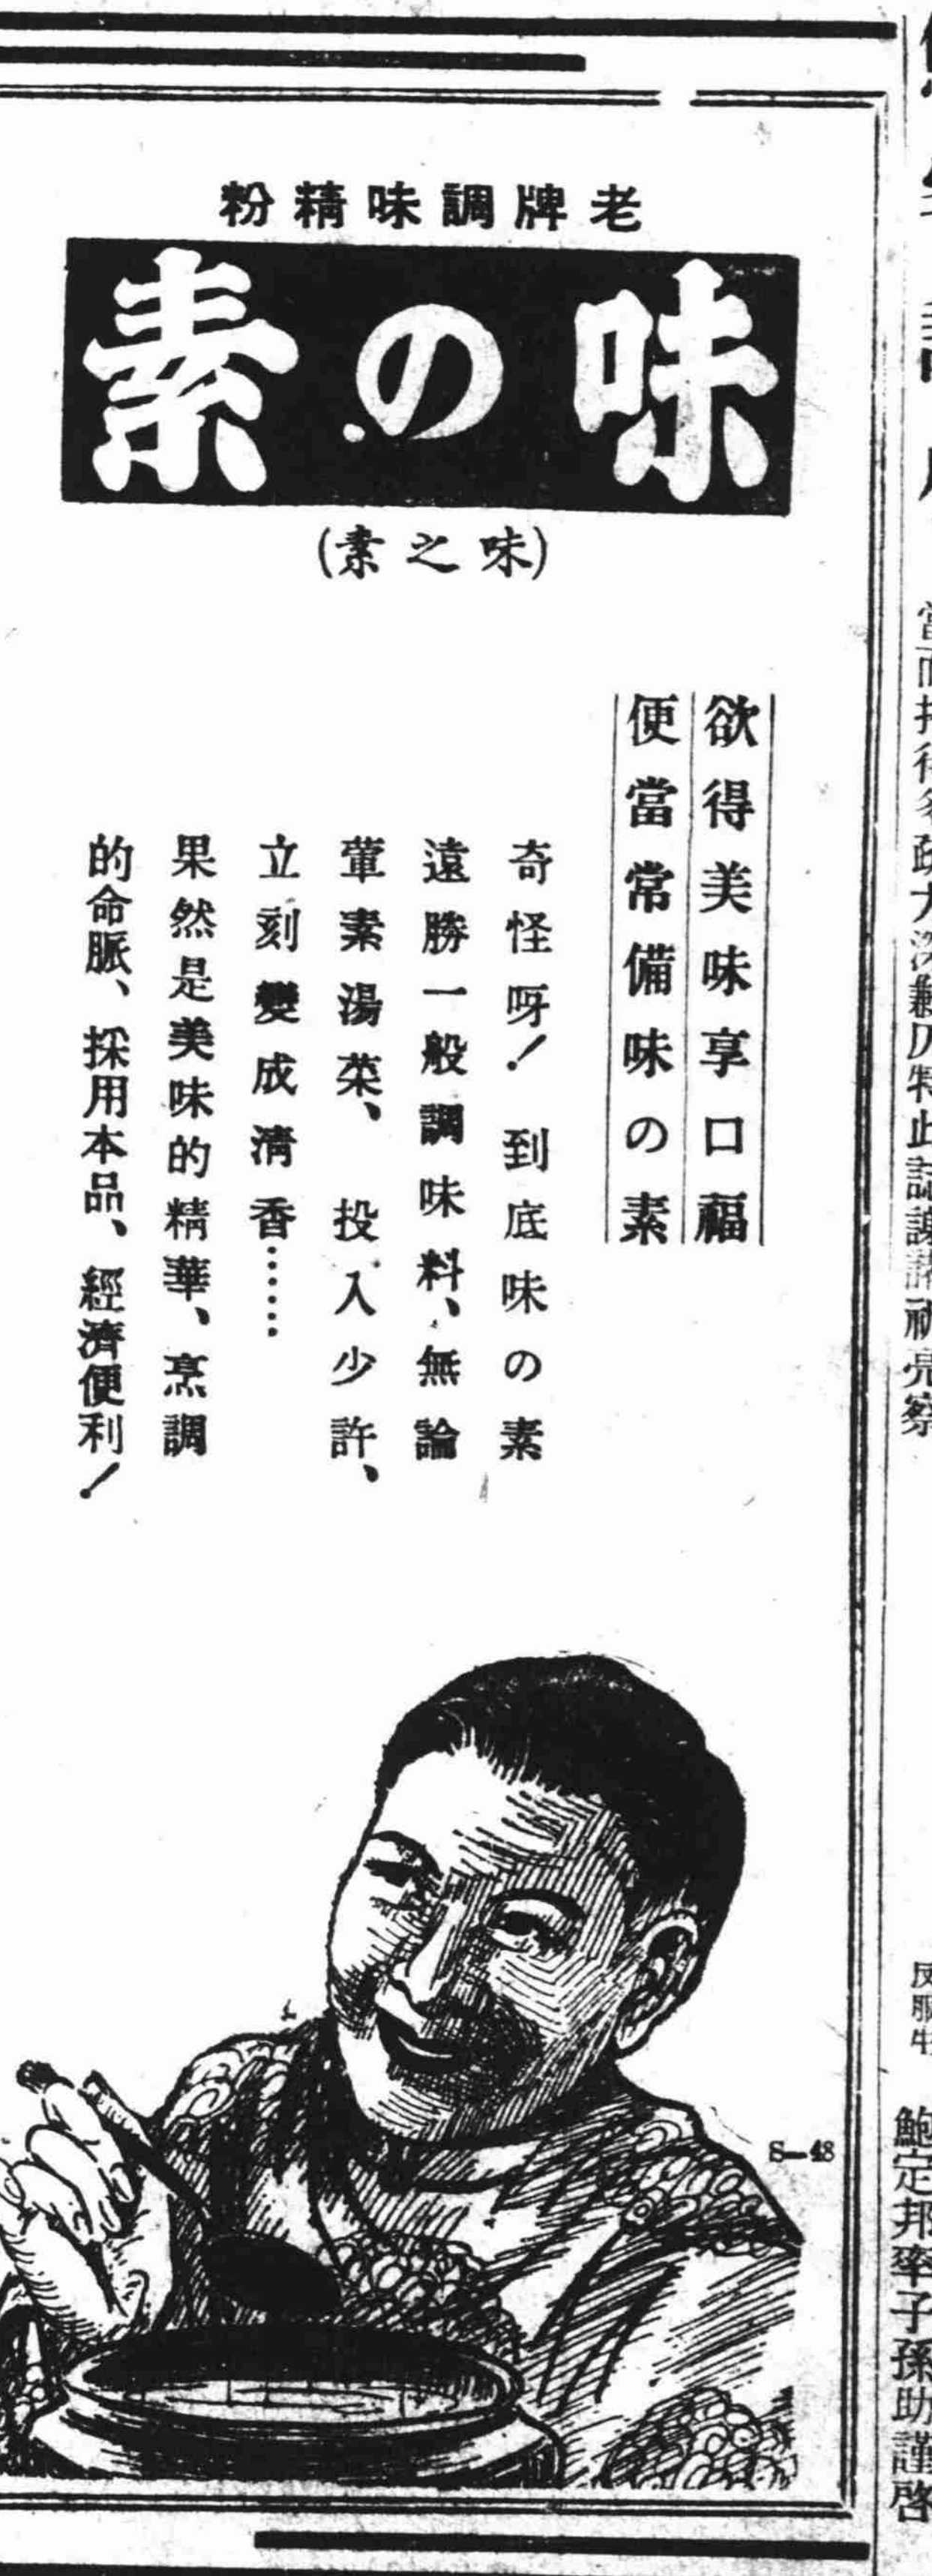 老牌調味精粉
味の素
(味之素)
欲得美味享口福
便當常備味の素
奇怪呀！到底味の素
遠勝一般調味料、無論
葷素湯菜、投入少許、
立刻變成清香……
果然是美味的精華、烹調
的命脈、採用本品、經濟便利！
S—48
鮑定邦率子孫助謹啓